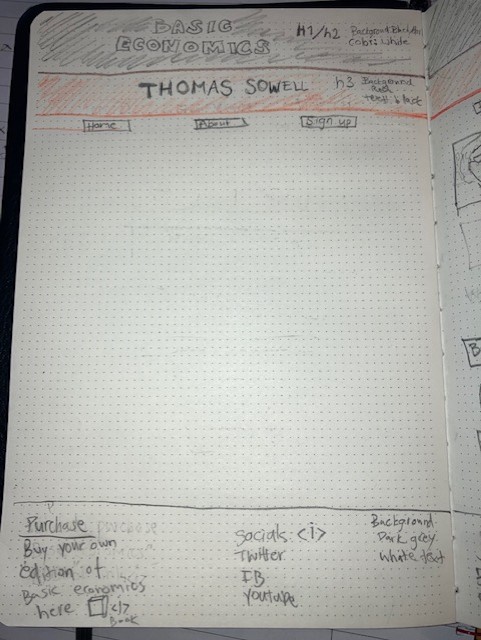 BASIC
ECONOMICS
h1/h2
Color: White
THOMAS SOWELL
h3
Background
Red
text black
Home
About
Sign up
Purchase
Buy your own
edition of
Basic economics
here </>
Book
Socials: <i>
Twitter
FB
Youtube
Background
Dark grey
White text